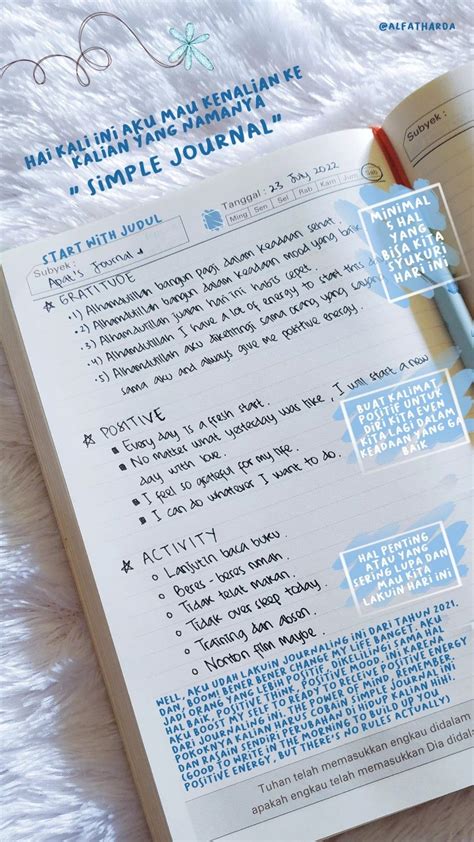 @ALFATHARDA
HAI KALI INI AKU MAU KENALIAN KE
KALIAN YANG NAMANYA
" SIMPLE JOURNAL"
START WITH JUDUL
Subyek :
Journal
Tanggal : 23 July 2022
Ming Sen Sel Rab Kam Jum Sab
Subyek :
GRATITUDE
1) Alhamdulillah bangun pagi dalam keadaan sehat.
2) Alhamdulillah bangun dalam keadaan mood yang baik
3) Alhamdulillah jualan hari ini habis cepet.
4) Alhamdulillah I have a lot of energy to start this
5) Alhamdulillah aku dikelilingi sama orang yang sayang
sama aku and always give me positive energy.
MINIMAL
5 HAL
YANG
BISA KITA
SYUKURI
HARI INI
POSITIVE
Every day is a fresh start.
No matter what yesterday was like, I will start a new
day with love.
I feel so grateful for my life.
I can do whatever I want to do.
BUAT KALIMAT
POSITIF UNTUK
DIRI KITA EVEN
KITA LAGI DALAM
KEADAAN YANG GA
BAIK
ACTIVITY
Lanjutin baca buku.
Beres - beres rumah.
Tidak telat makan.
Tidak over sleep today.
Training dan absen.
Nonton film maybe.
HAL PENTING
ATAU YANG
SERING LUPA DAN
MAU KITA
LAKUIN HARI INI
WELL, AKU UDAH LAKUIN JOURNALING INI DARI TAHUN 2021.
DAN, BOOM! BENER BENER CHANGE MY LIFE BANGET, AKU
JADI ORANG YANG LEBIH POSITIVE DIKELILINGI SAMA HAL
HAL BAIK, POSITIVE THINK, POSITIVE MOOD, INI KAREA
AKU BOOST MY SELF TO READY TO RECEIVE POSITIVE ENERGY
DARI JOURNALING INI, THE POWER OF MIND, REMEMBER.
POKOKNYA KALIAN HARUS COBAIN SIMPLE JOURNAL INI
DAN RASAIN SENDIRI PERUBAHAN DIHIDUP KALIAN HIHI
(GOOD TO WRITE IN THE MORNING TO BUILD UP YOU
POSITIVE ENERGY, BUT THERE'S NO RULES ACTUALLY)
Tuhan telah memasukkan engkau dalam
apakah engkau telah memasukkan Dia dalam